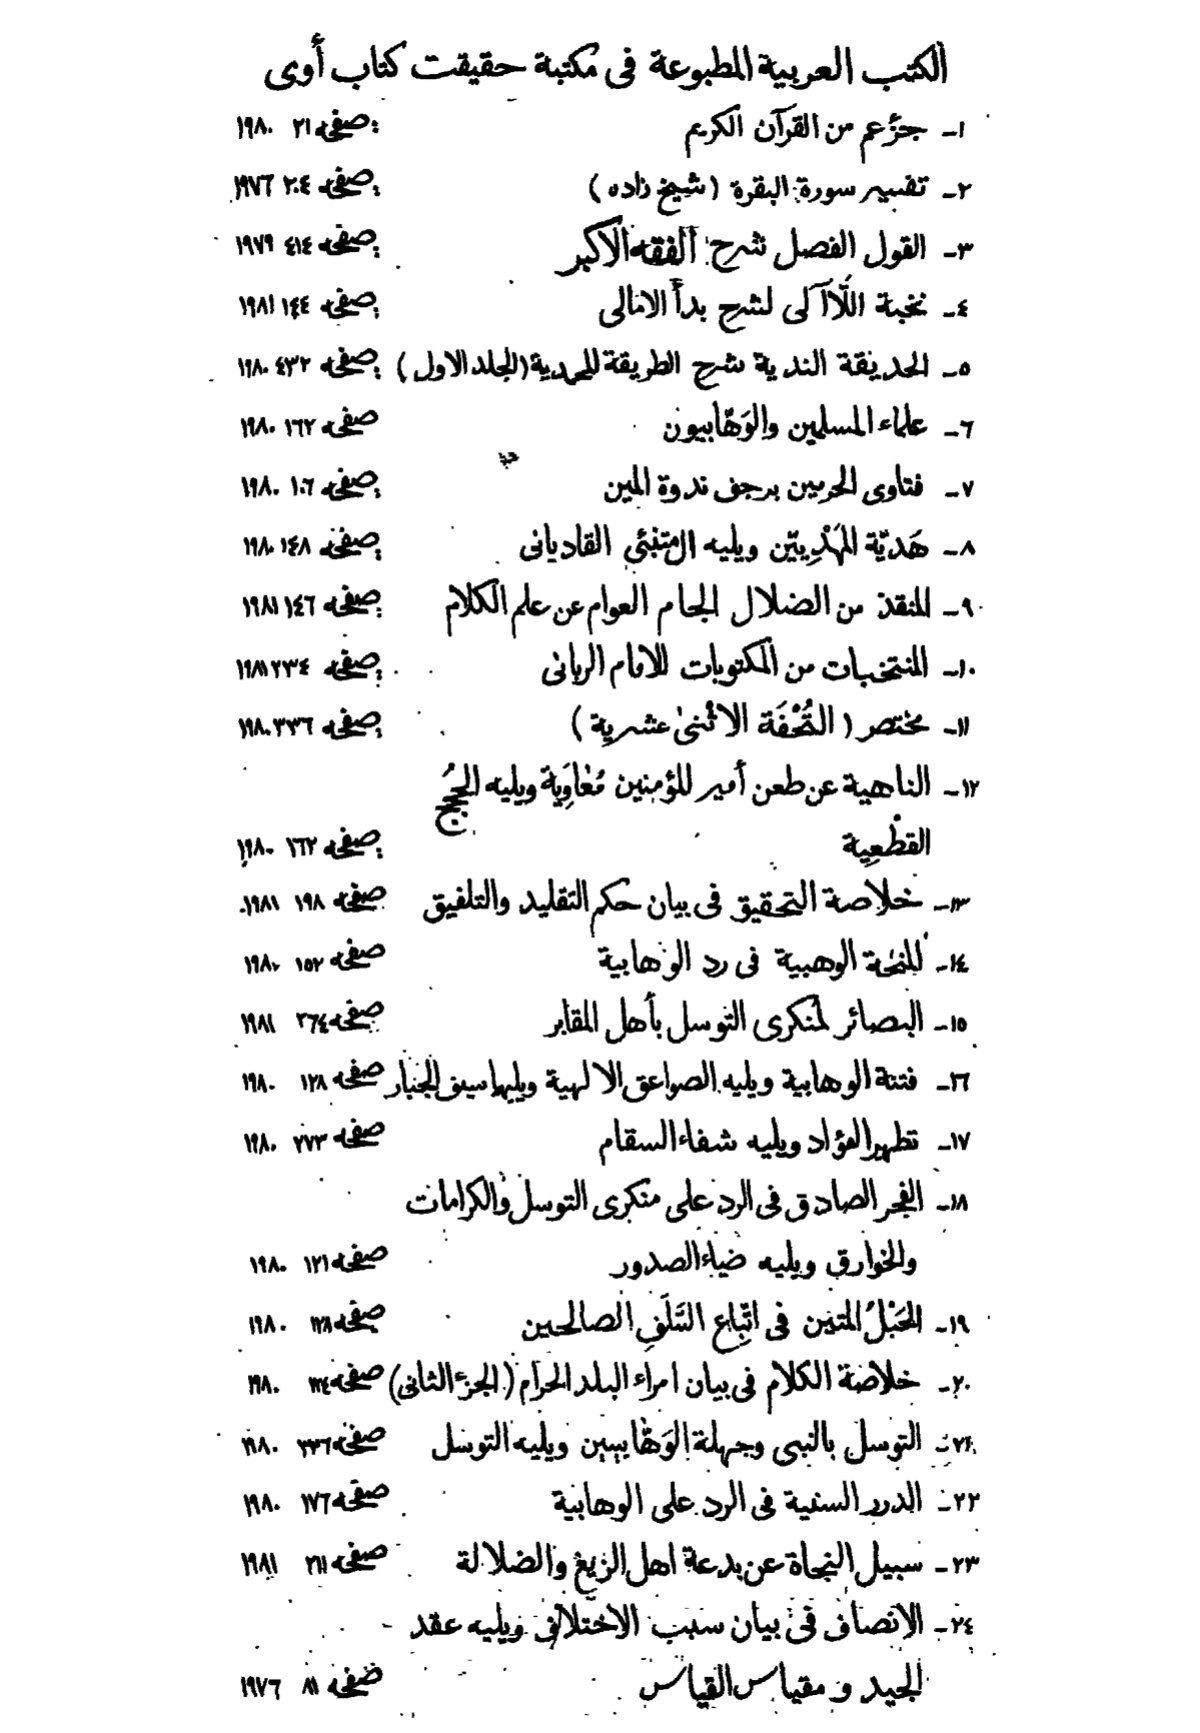 الكتب العربية المطبوعة فى مكتبة حقيقت كتاب أوى
١- جزء عم من القرآن الكريم صفحه ٢١ ١٩٨٠
٢- تفسير سورة البقرة (شيخ زاده) صفحه ٢٠٤ ١٩٧٦
٣- القول الفصل شرح الفقه الاكبر صفحه ٤١٤ ١٩٧٩
٤- نخبة اللاآلى لشرح بدأ الامالى صفحه ١٤٤ ١٩٨١
٥- الحديقة الندية شرح الطريقة المحمدية (الجلد الاول) صفحه ٤٣٢ ١٩٨٠
٦- علماء المسلمين والوَهّابيون صفحه ١٦٢ ١٩٨٠
٧- فتاوى الحرمين برجف ندوة المين صفحه ١٠٦ ١٩٨٠
٨- هَديّة المَهْدِيّين ويليه المتنبّئ القاديانى صفحه ١٤٨ ١٩٨٠
٩- المنقذ من الضلال الجام العوام عن علم الكلام صفحه ١٤٦ ١٩٨١
١٠- المنتخبات من المكتوبات للامام الربانى صفحه ٢٣٤ ١٩٨١
١١- مختصر (التُّحْفَة الاثْنىٰ عشرية) صفحه ٣٣٦ ١٩٨٠
١٢- الناهية عن طعن أمير المؤمنين مُعٰاوِيَة ويليه الحُجج
القطْعِية صفحه ١٦٢ ١٩٨٠
١٣- خلاصة التحقيق فى بيان حكم التقليد والتلفيق صفحه ١٩٨ ١٩٨١
١٤- المنحة الوهبية فى رد الوهابية صفحه ١٥٢ ١٩٨٠
١٥- البصائر لمنكرى التوسل بأهل المقابر صفحه ٢٦٤ ١٩٨١
١٦- فتنة الوهابية ويليه الصواعق الالهية ويليها سيف الجبار صفحه ١٢٨ ١٩٨٠
١٧- تطهير الفؤاد ويليه شفاء السقام صفحه ٢٧٣ ١٩٨٠
١٨- الفجر الصادق فى الرد على منكرى التوسل والكرامات
والخوارق ويليه ضياء الصدور صفحه ١٢١ ١٩٨٠
١٩- الحَبْلُ المتين فى اتِّباع السَّلَفِ الصالحين صفحه ١٢٨ ١٩٨٠
٢٠- خلاصة الكلام فى بيان امراء البلد الحرام (الجزء الثانى) صفحه ١٩٨٠
٢١- التوسل بالنبى وجهلة الوَهّابيين ويليه التوسل صفحه ٣٣٦ ١٩٨٠
٢٢- الدرر السنية فى الرد على الوهابية صفحه ١٧٦ ١٩٨٠
٢٣- سبيل النجاة عن بدعة اهل الزيغ والضلالة صفحه ١٩٨١
٢٤- الانصاف فى بيان سبب الاختلاف ويليه عقد
الجيد و مقياس القياس صفحه ٨١ ١٩٧٦